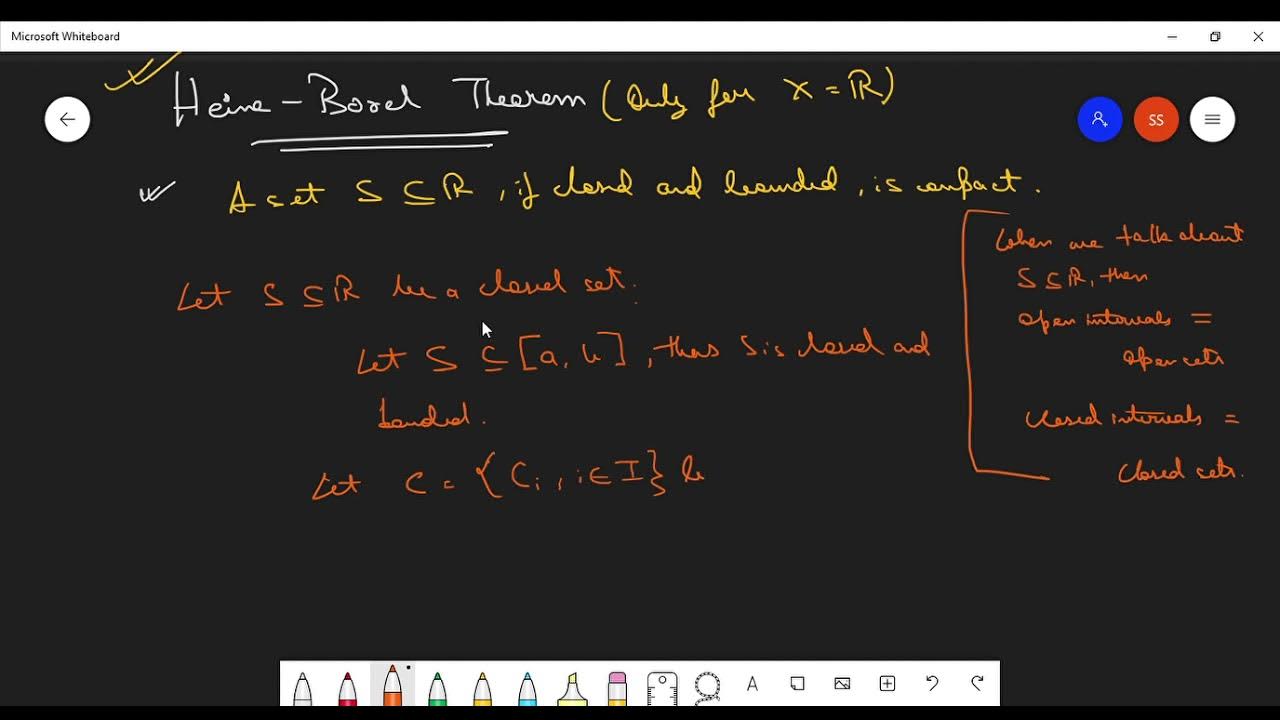 Microsoft Whiteboard
Heine-Borel Theorem (Only for X = ℝ)
SS
A set S ⊆ ℝ, if closed and bounded, is compact.
When we talk about
S ⊆ ℝ, then
open intervals =
open sets
Closed intervals =
Closed sets.
Let S ⊆ ℝ be a closed set.
Let S ⊆ [a, b], thus S is closed and
bounded.
Let C = {Cᵢ, i ∈ I} be
A